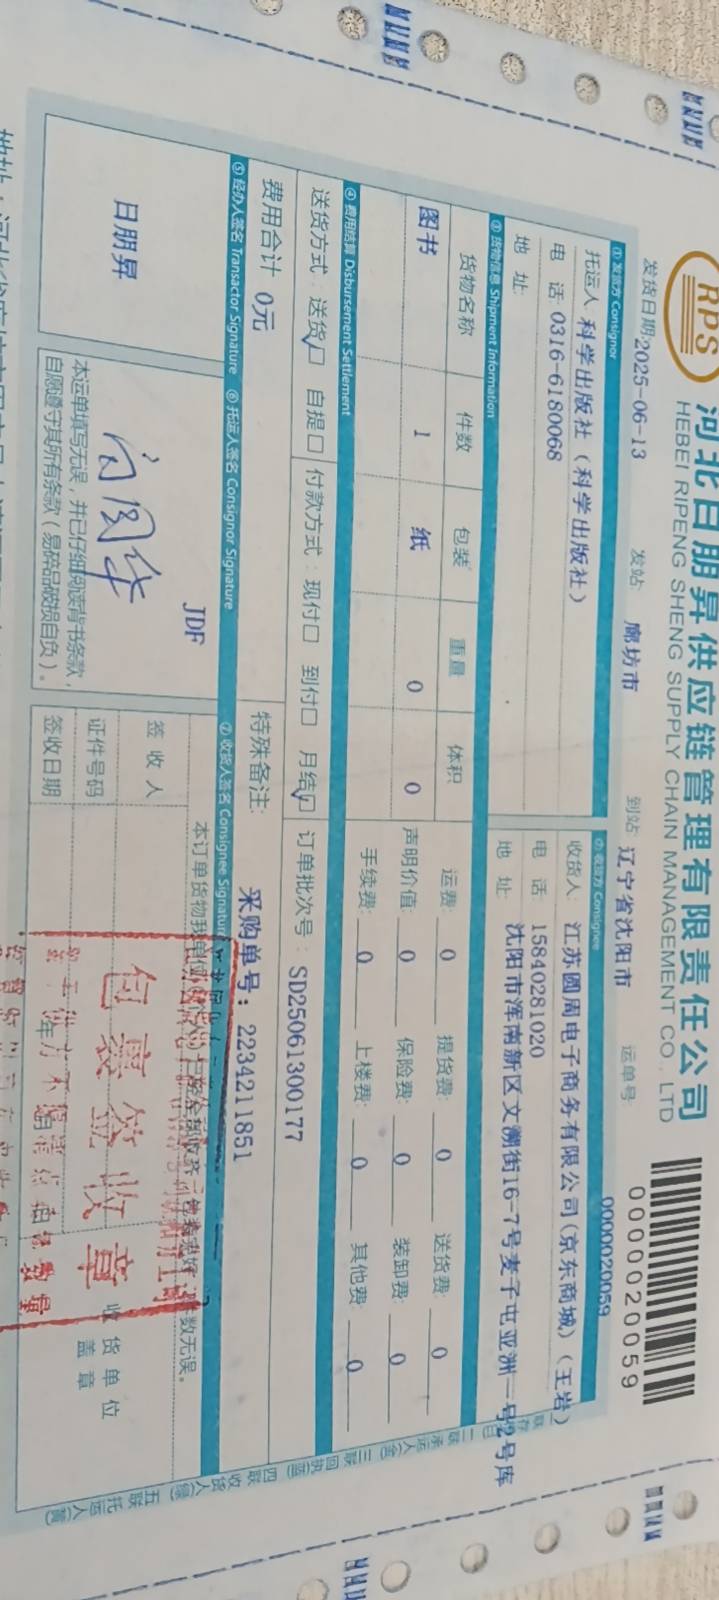 RPS
河北日朋昇供应链管理有限责任公司
HEBEI RIPENG SHENG SUPPLY CHAIN MANAGEMENT CO.,LTD
0000020059
发货日期:2025-06-13 发站: 廊坊市 到站: 辽宁省沈阳市 运单号: 0000020059
① 发货方 Consignor
托运人: 科学出版社（科学出版社）
电 话: 0316-6180068
地 址:
② 收货方 Consignee
收货人: 江苏圆周电子商务有限公司(京东商城)（王岩）
电 话: 15840281020
地 址: 沈阳市浑南新区文溯街16-7号麦子屯亚洲一号2号库
③ 货物信息 Shipment Information
货物名称 件数 包装 重量 体积
图书 1 纸 0 0
运费: 0 提货费: 0 送货费: 0
声明价值: 0 保险费: 0 装卸费: 0
手续费: 0 上楼费: 0 其他费 0
④ 费用结算 Disbursement Settlement
送货方式: 送货☑ 自提□ 付款方式: 现付□ 到付□ 月结☑ 订单批次号: SD25061300177
费用合计 0元 特殊备注: 采购单号: 2234211851
⑤ 经办人签名 Transactor Signature
⑥ 托运人签名 Consignor Signature
⑦ 收货人签名 Consignee Signature
日朋昇
JDF
本运单填写无误，并已仔细阅读背书条款，
自愿遵守其所有条款（易碎品破损自负）。
本订单货物我单位
件数无误。
签 收 人
证件号码
签收日期
包裹签收章
收货单位
盖章